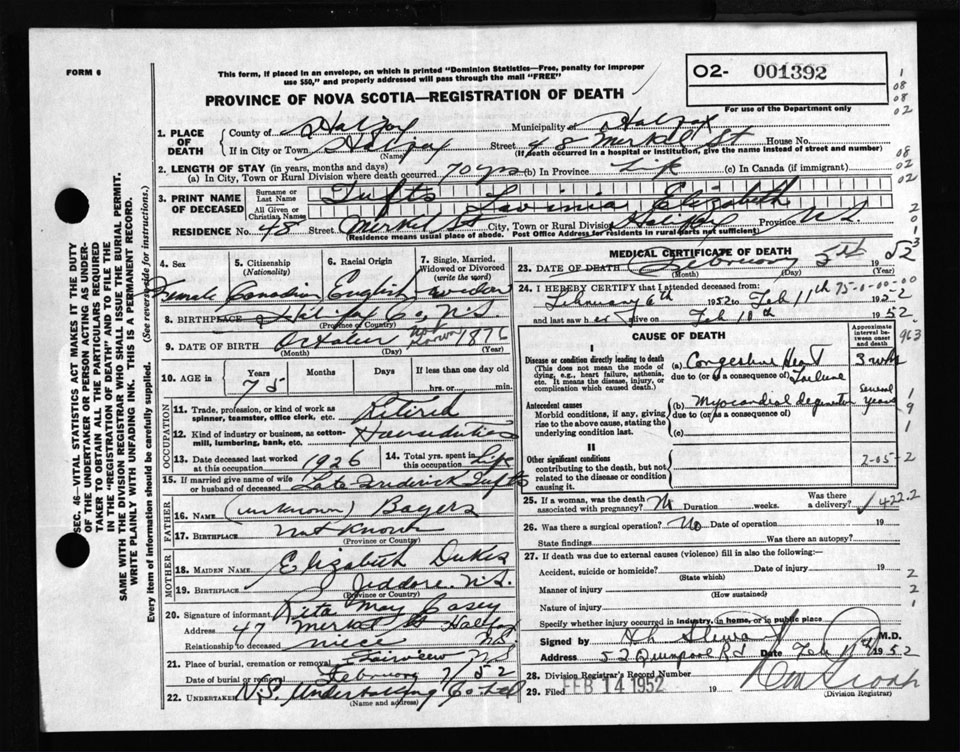 FORM 6
This form, if placed in an envelope, on which is printed "Dominion Statistics—Free, penalty for improper
use $50," and properly addressed will pass through the mail "FREE"
O2- 001392
For use of the Department only
PROVINCE OF NOVA SCOTIA—REGISTRATION OF DEATH
1. PLACE OF DEATH
County of Halifax Municipality of Halifax
If in City or Town Halifax Street 48 Merkel St House No.
(Name) (If death occurred in a hospital or institution, give the name instead of street and number)
2. LENGTH OF STAY (in years, months and days)
(a) In City, Town or Rural Division where death occurred 70 yrs (b) In Province Life (c) In Canada (if immigrant)
3. PRINT NAME OF DECEASED
Surname or Last Name Tufts
All Given or Christian Names Lavinia Elizabeth
RESIDENCE No. 48 Street Merkel St City, Town or Rural Division Halifax Province N.S.
(Residence means usual place of abode. Post Office Address for residents in rural parts not sufficient)
4. Sex
Female
5. Citizenship
(Nationality)
Canadian
6. Racial Origin
English
7. Single, Married,
Widowed or Divorced
(write the word)
8. BIRTHPLACE Halifax Co., N.S.
(Province or Country)
9. DATE OF BIRTH October not know 1876
(Month) (Day) (Year)
10. AGE in Years 75 Months Days If less than one day
hrs. or min.
OCCUPATION
11. Trade, profession, or kind of work as
spinner, teamster, office clerk, etc. Retired
12. Kind of industry or business, as cotton-
mill, lumbering, bank, etc.
13. Date deceased last worked
at this occupation 1926
14. Total yrs. spent in
this occupation Life
15. If married give name of wife
or husband of deceased Late Frederick Tufts
FATHER
16. NAME (unknown)
17. BIRTHPLACE not known
(Province or Country)
MOTHER
18. MAIDEN NAME Elizabeth Dukes
19. BIRTHPLACE Jeddore, N.S.
(Province or Country)
20. Signature of informant Rita May Casey
Address 47 Merkel St Halifax
N.S.
Relationship to deceased niece
21. Place of burial, cremation or removal Fairview N.S.
Date of burial or removal February 52
22. UNDERTAKER N.S. Undertaking Co. Ltd
(Name and address)
MEDICAL CERTIFICATE OF DEATH
23. DATE OF DEATH February 19 52
(Month) (Day) (Year)
24. I HEREBY CERTIFY that I attended deceased from:
February 6th 1952 to Feb 11th 1952
and last saw her alive on Feb 10th 1952
75-0-00-00
CAUSE OF DEATH
Approximate
interval be-
tween onset
and death
I
Disease or condition directly leading to death
(This does not mean the mode of
dying, e.g., heart failure, asthenia,
etc. It means the disease, injury, or
complication which caused death.)
(a) Congestive Heart 3 wks
due to (or as a consequence of) Failure
Antecedent causes
Morbid conditions, if any, giving
rise to the above cause, stating the
underlying condition last.
(b) Myocardial several years
due to (or as a consequence of)
(c)
II
Other significant conditions
contributing to the death, but not
related to the disease or condition
causing it.
2-05-2
25. If a woman, was the death
associated with pregnancy? No Duration weeks. Was there
a delivery?
422.2
26. Was there a surgical operation? No Date of operation 19
State findings Was there an autopsy?
27. If death was due to external causes (violence) fill in also the following:—
Accident, suicide or homicide? Date of injury 19
(State which)
Manner of injury
(How sustained)
Nature of injury
Specify whether injury occurred in industry, in home, or in public place
Signed by M.D.
Address 52 Quinpool Rd Date Feb 1952
28. Division Registrar's Record Number
29. Filed FEB 14 1952 19
(Division Registrar)
SEC. 46—VITAL STATISTICS ACT MAKES IT THE DUTY
OF THE UNDERTAKER OR PERSON ACTING AS UNDER-
TAKER TO OBTAIN ALL THE PARTICULARS REQUIRED
IN THE "REGISTRATION OF DEATH" AND TO FILE THE
SAME WITH THE DIVISION REGISTRAR WHO SHALL ISSUE THE BURIAL PERMIT.
WRITE PLAINLY WITH UNFADING INK. THIS IS A PERMANENT RECORD.
Every item of information should be carefully supplied. (See reverse side for instructions.)